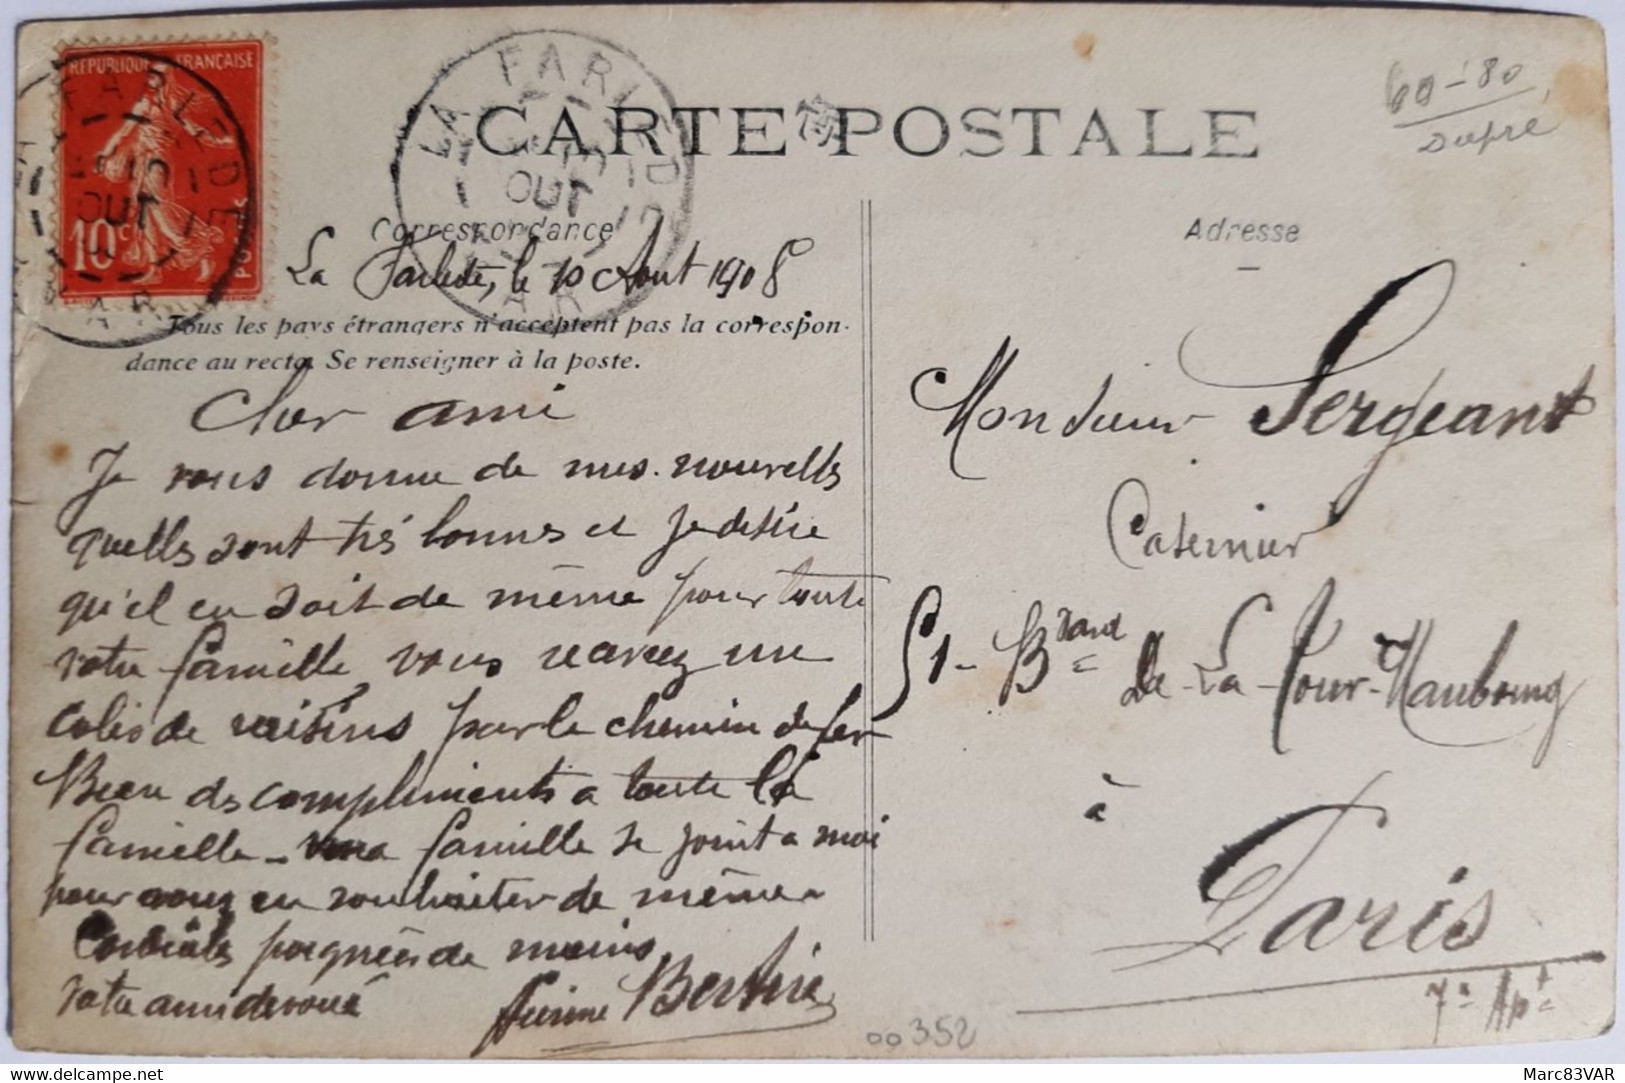 REPUBLIQUE FRANÇAISE
10c POSTES
LA FARLEDE
10
AOUT
VAR
LA FARLEDE
10
AOUT
VAR
CARTE POSTALE
60-80
Dupré
Correspondance
Adresse
La Farlède, le 10 Aout 1908
Tous les pays étrangers n'acceptent pas la correspon-
dance au recto. Se renseigner à la poste.
Cher ami
Je vous donne de mes nouvelles
quelles sont très bonnes et je desire
qu'il en soit de même pour toute
votre famille vous recevrez un
colis de raisins par le chemin de fer
Bien des compliments a toute la
famille - ma famille se joint a moi
pour vous en souhaiter de même
Cordiales poignées de mains
votre ami devoué
Bertrine
Monsieur Sergeant
Casernier
51 - Bvard De La Tour-Maubourg
à
Paris
7e Apt
00352
Marc83VAR